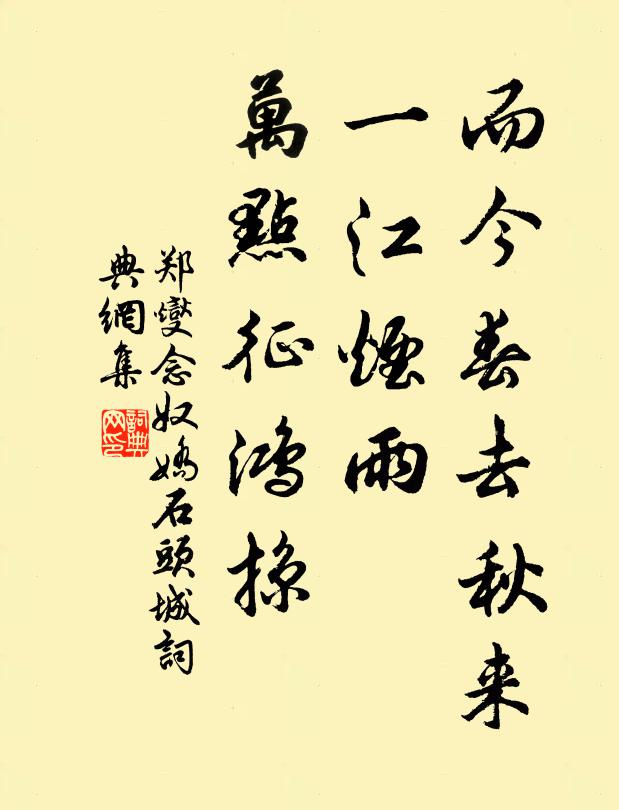 而今春去秋来
一江煙雨
萬點征鴻掠
郑燮念奴嬌石頭城詞
典網集
詞典网印